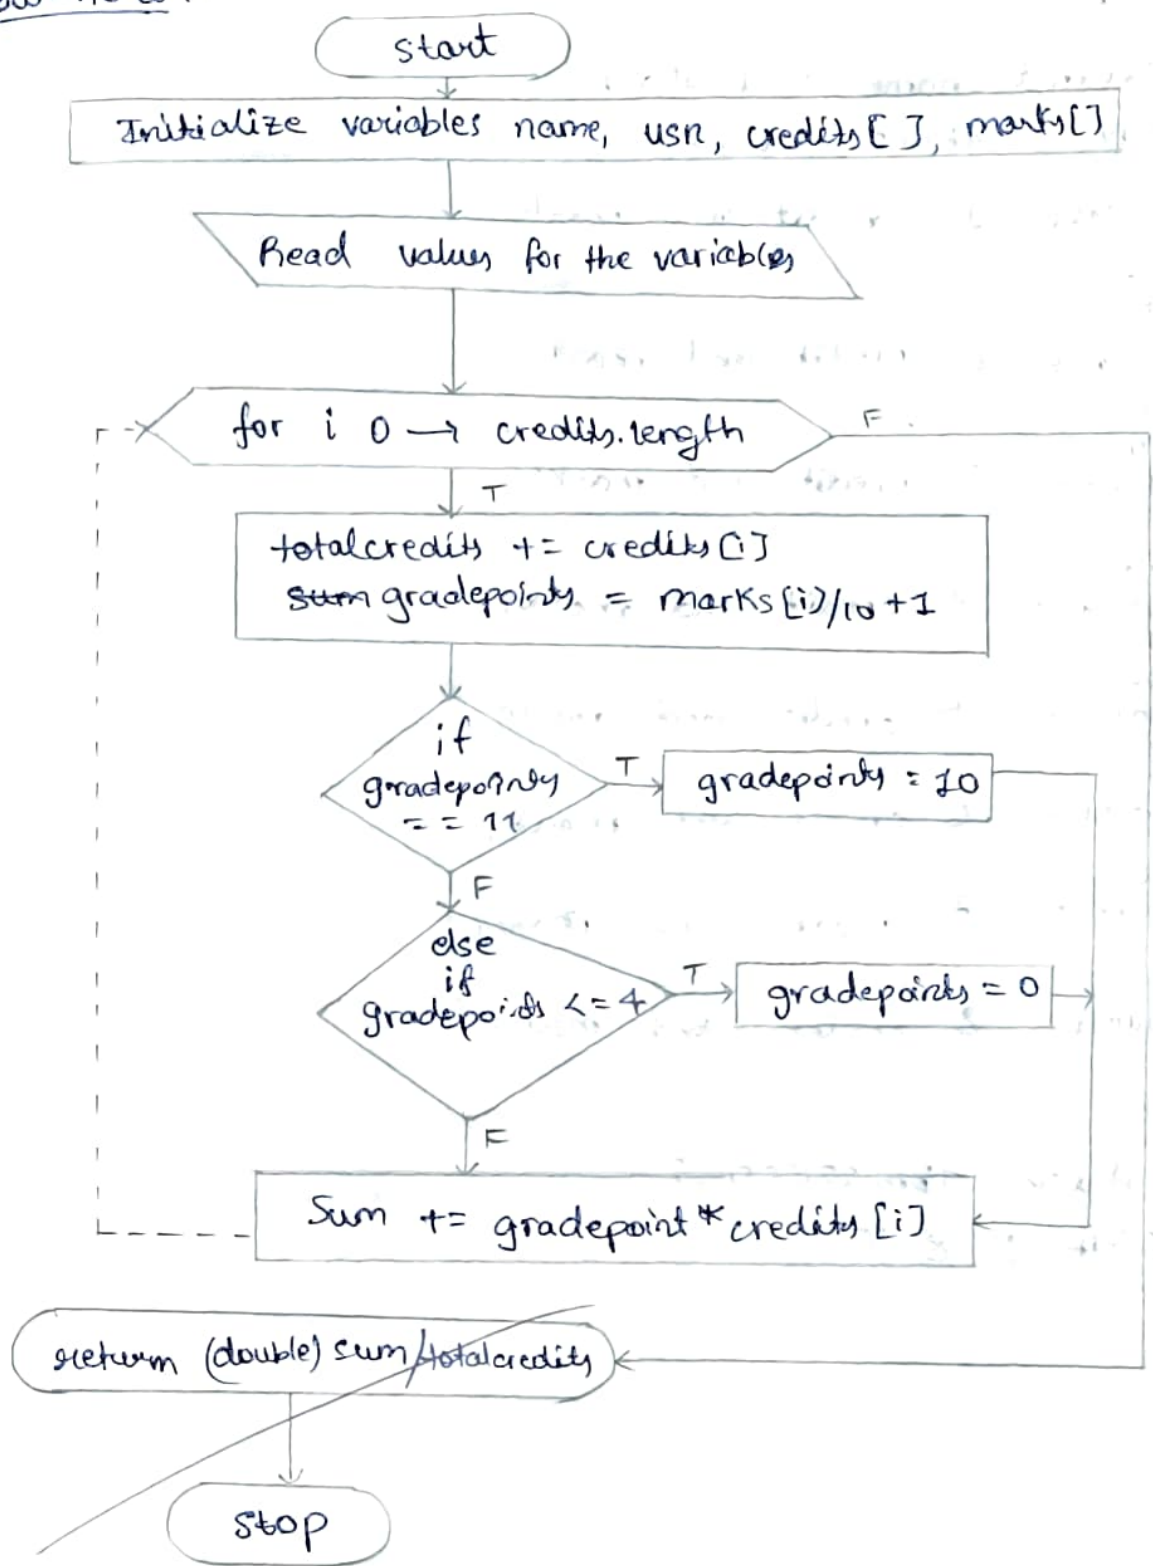 start
Initialize variables name, usn, credits [ ], marks[]
Read values for the variables
for i 0 → credits.length
F
T
totalcredits += credits[i]
gradepoints = marks[i]/10 +1
if
gradepoints
== 11
T
gradepoints = 10
F
else
if
gradepoints <= 4
T
gradepoints = 0
F
Sum += gradepoint * credits [i]
return (double) sum/totalcredits
stop